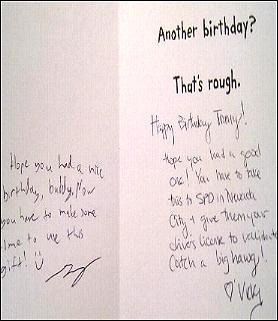 Hope you had a nice
birthday, buddy. Now
you have to make some
time to use this
gift!
Another birthday?
That's rough.
Happy Birthday Tommy!
Hope you had a good
one! You have to take
this to SPD in
City + give them your
drivers license to validate
Catch a big hawg!